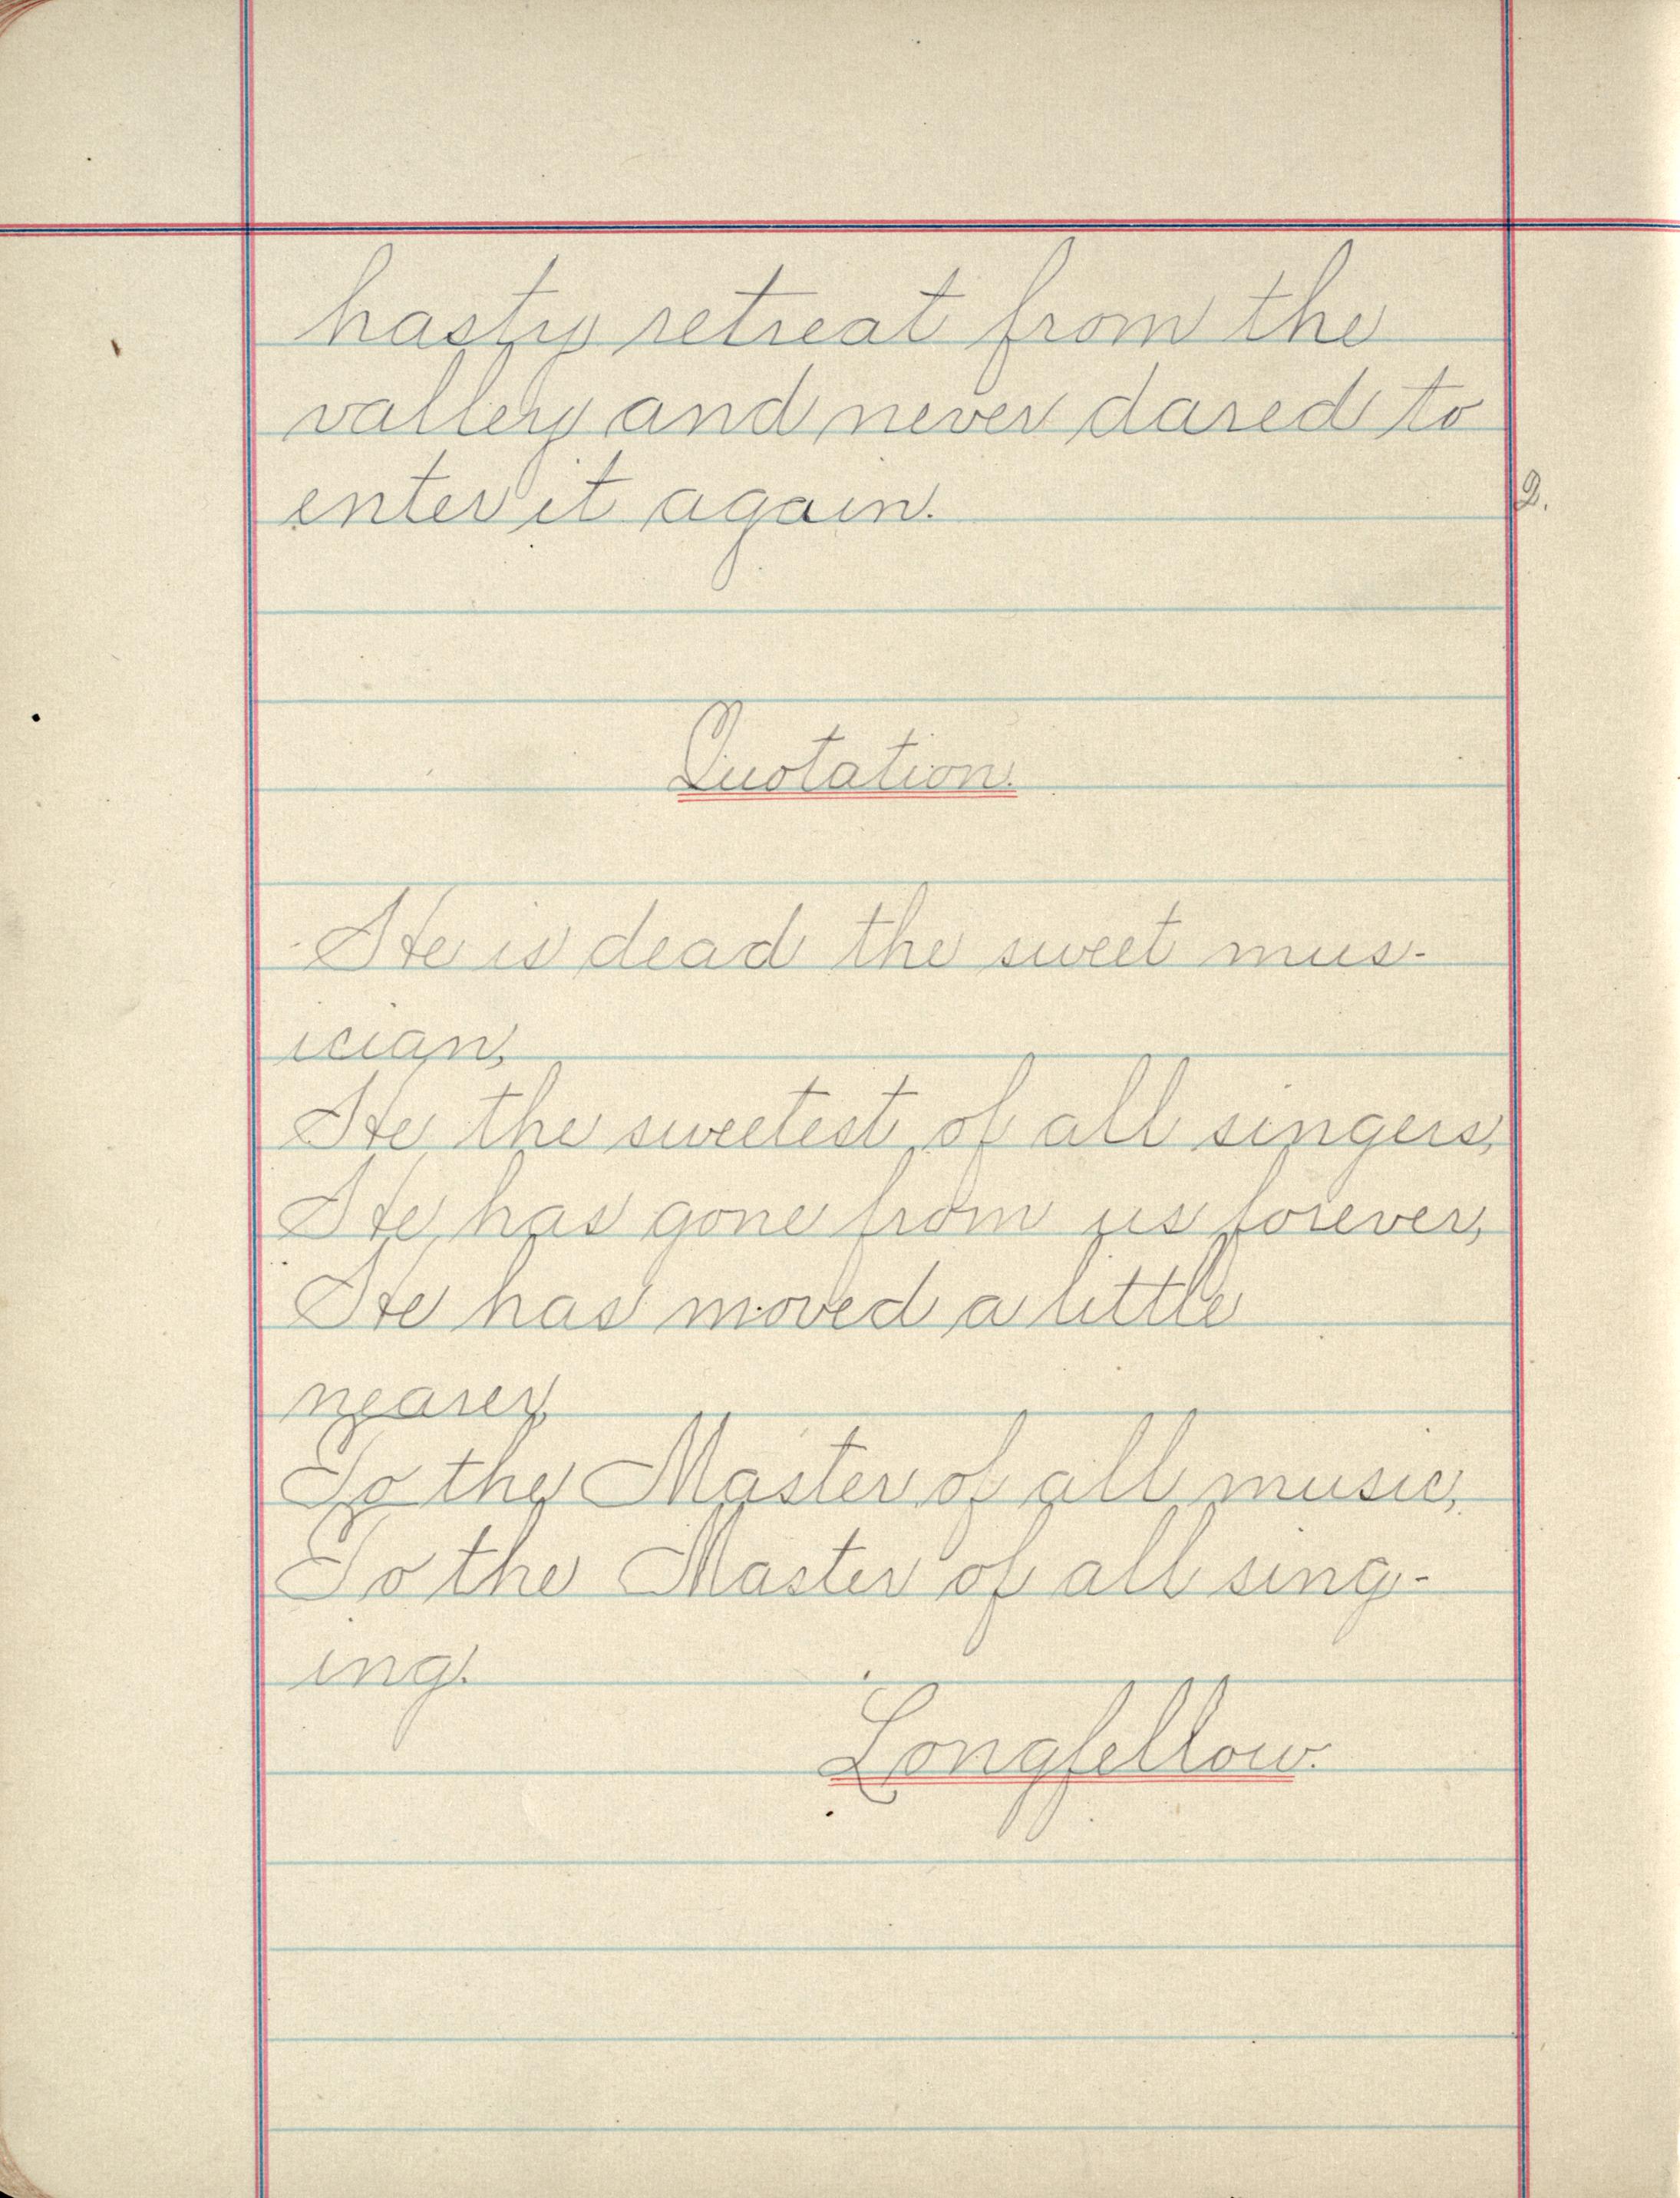 hasty retreat from the
valley and never dared to
enter it again.
2.
Quotation.
He is dead the sweet mus-
ician,
He the sweetest of all singers,
He has gone from us forever,
He has moved a little
nearer,
To the Master of all music,
To the Master of all sing-
ing.
Longfellow.